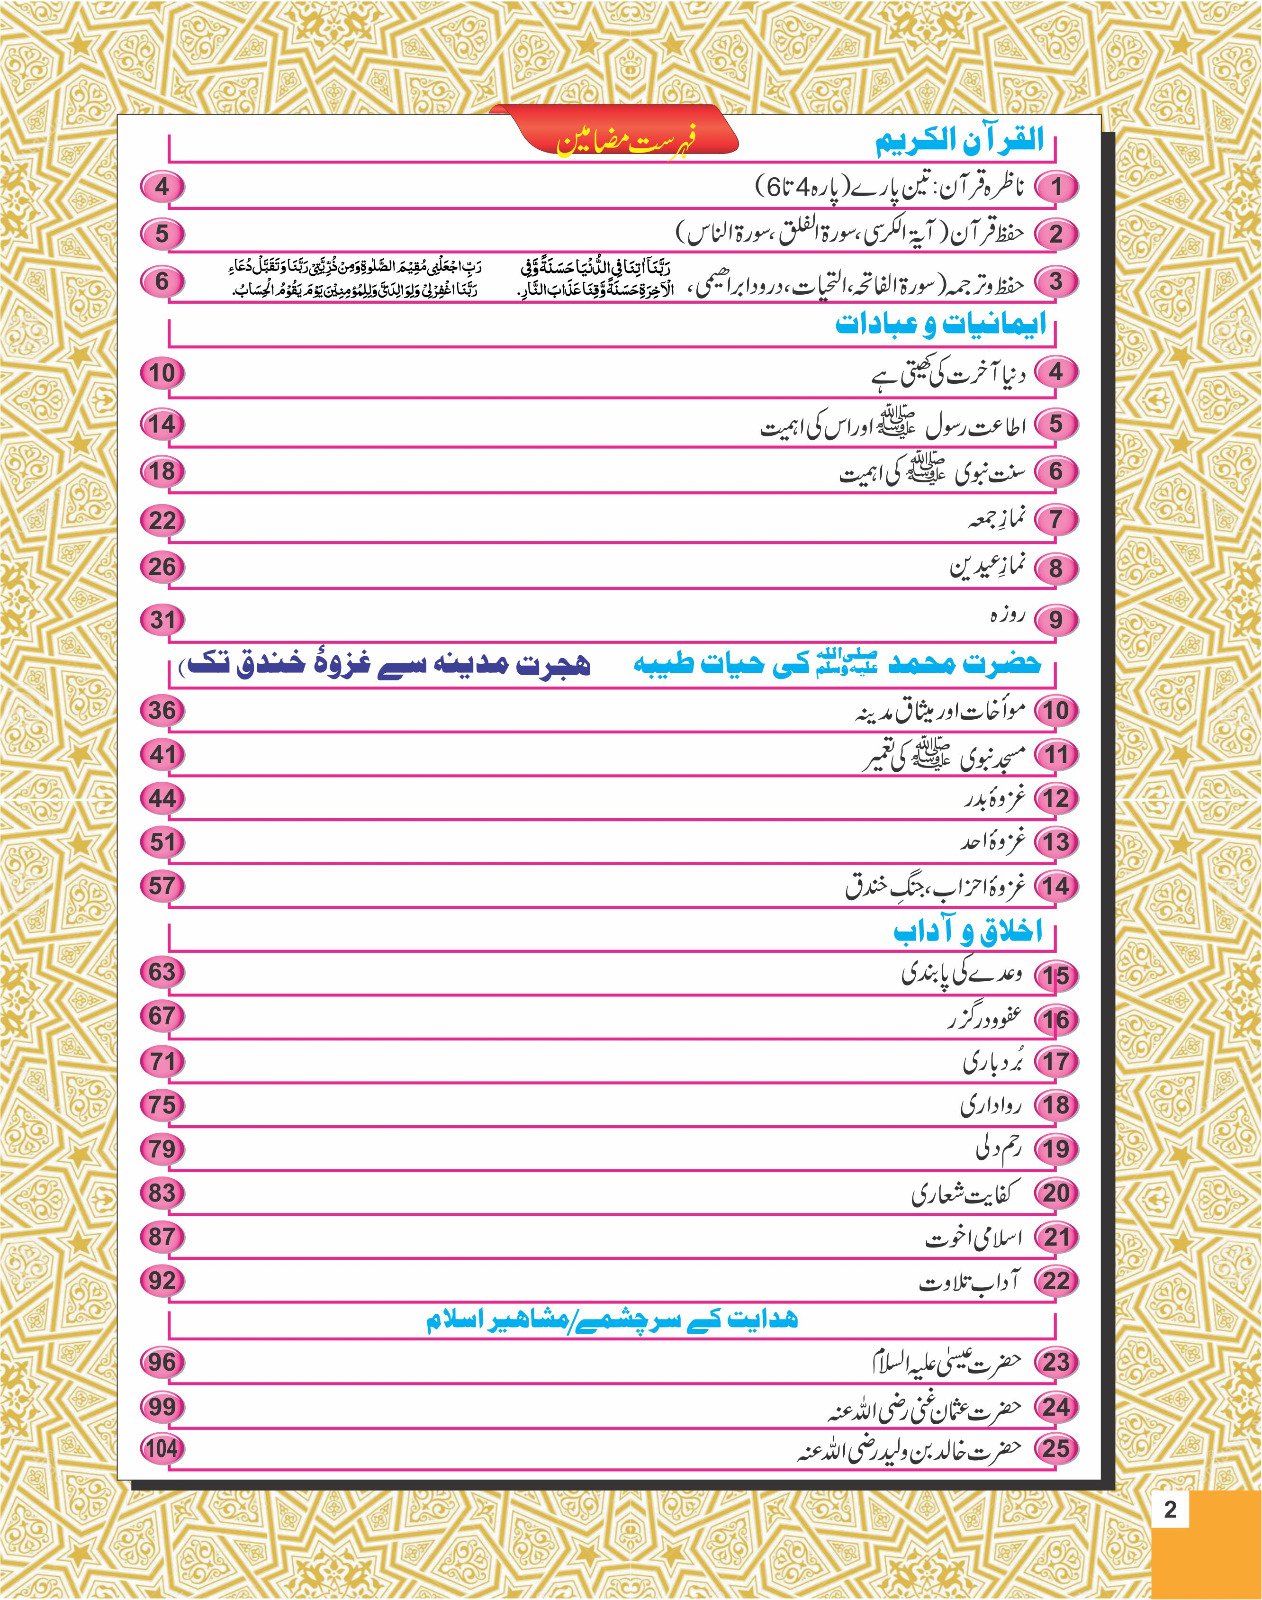 فہرست مضامین
القرآن الکریم
1 ناظرہ قرآن: تین پارے (پارہ 4 تا 6) 4
2 حفظ قرآن (آیۃ الکرسی، سورۃ الفلق، سورۃ الناس) 5
3 حفظ و ترجمہ (سورۃ الفاتحہ، التحیات، درود ابراھیمی، رَبَّنَآ اٰتِنَا فِی الدُّنْیَا حَسَنَةً وَّفِی الْاٰخِرَةِ حَسَنَةً وَّقِنَا عَذَابَ النَّارِ. رَبِّ اجْعَلْنِیْ مُقِیْمَ الصَّلٰوةِ وَمِنْ ذُرِّیَّتِیْ رَبَّنَا وَتَقَبَّلْ دُعَآءِ رَبَّنَا اغْفِرْلِیْ وَلِوَالِدَیَّ وَلِلْمُؤْمِنِیْنَ یَوْمَ یَقُوْمُ الْحِسَابُ. 6
ایمانیات و عبادات
4 دنیا آخرت کی کھیتی ہے 10
5 اطاعت رسول ﷺ اور اس کی اہمیت 14
6 سنت نبوی ﷺ کی اہمیت 18
7 نمازِ جمعہ 22
8 نمازِ عیدین 26
9 روزہ 31
حضرت محمد ﷺ کی حیات طیبہ ھجرت مدینہ سے غزوۂ خندق تک)
10 مواٴخات اور میثاق مدینہ 36
11 مسجد نبوی ﷺ کی تعمیر 41
12 غزوۂ بدر 44
13 غزوۂ احد 51
14 غزوۂ احزاب، جنگِ خندق 57
اخلاق و آداب
15 وعدے کی پابندی 63
16 عفوودرگزر 67
17 بُردباری 71
18 رواداری 75
19 رحم دلی 79
20 کفایت شعاری 83
21 اسلامی اخوت 87
22 آداب تلاوت 92
ھدایت کے سرچشمے/مشاھیر اسلام
23 حضرت عیسیٰ علیہ السلام 96
24 حضرت عثمان غنی رضی اللہ عنہ 99
25 حضرت خالد بن ولید رضی اللہ عنہ 104
2